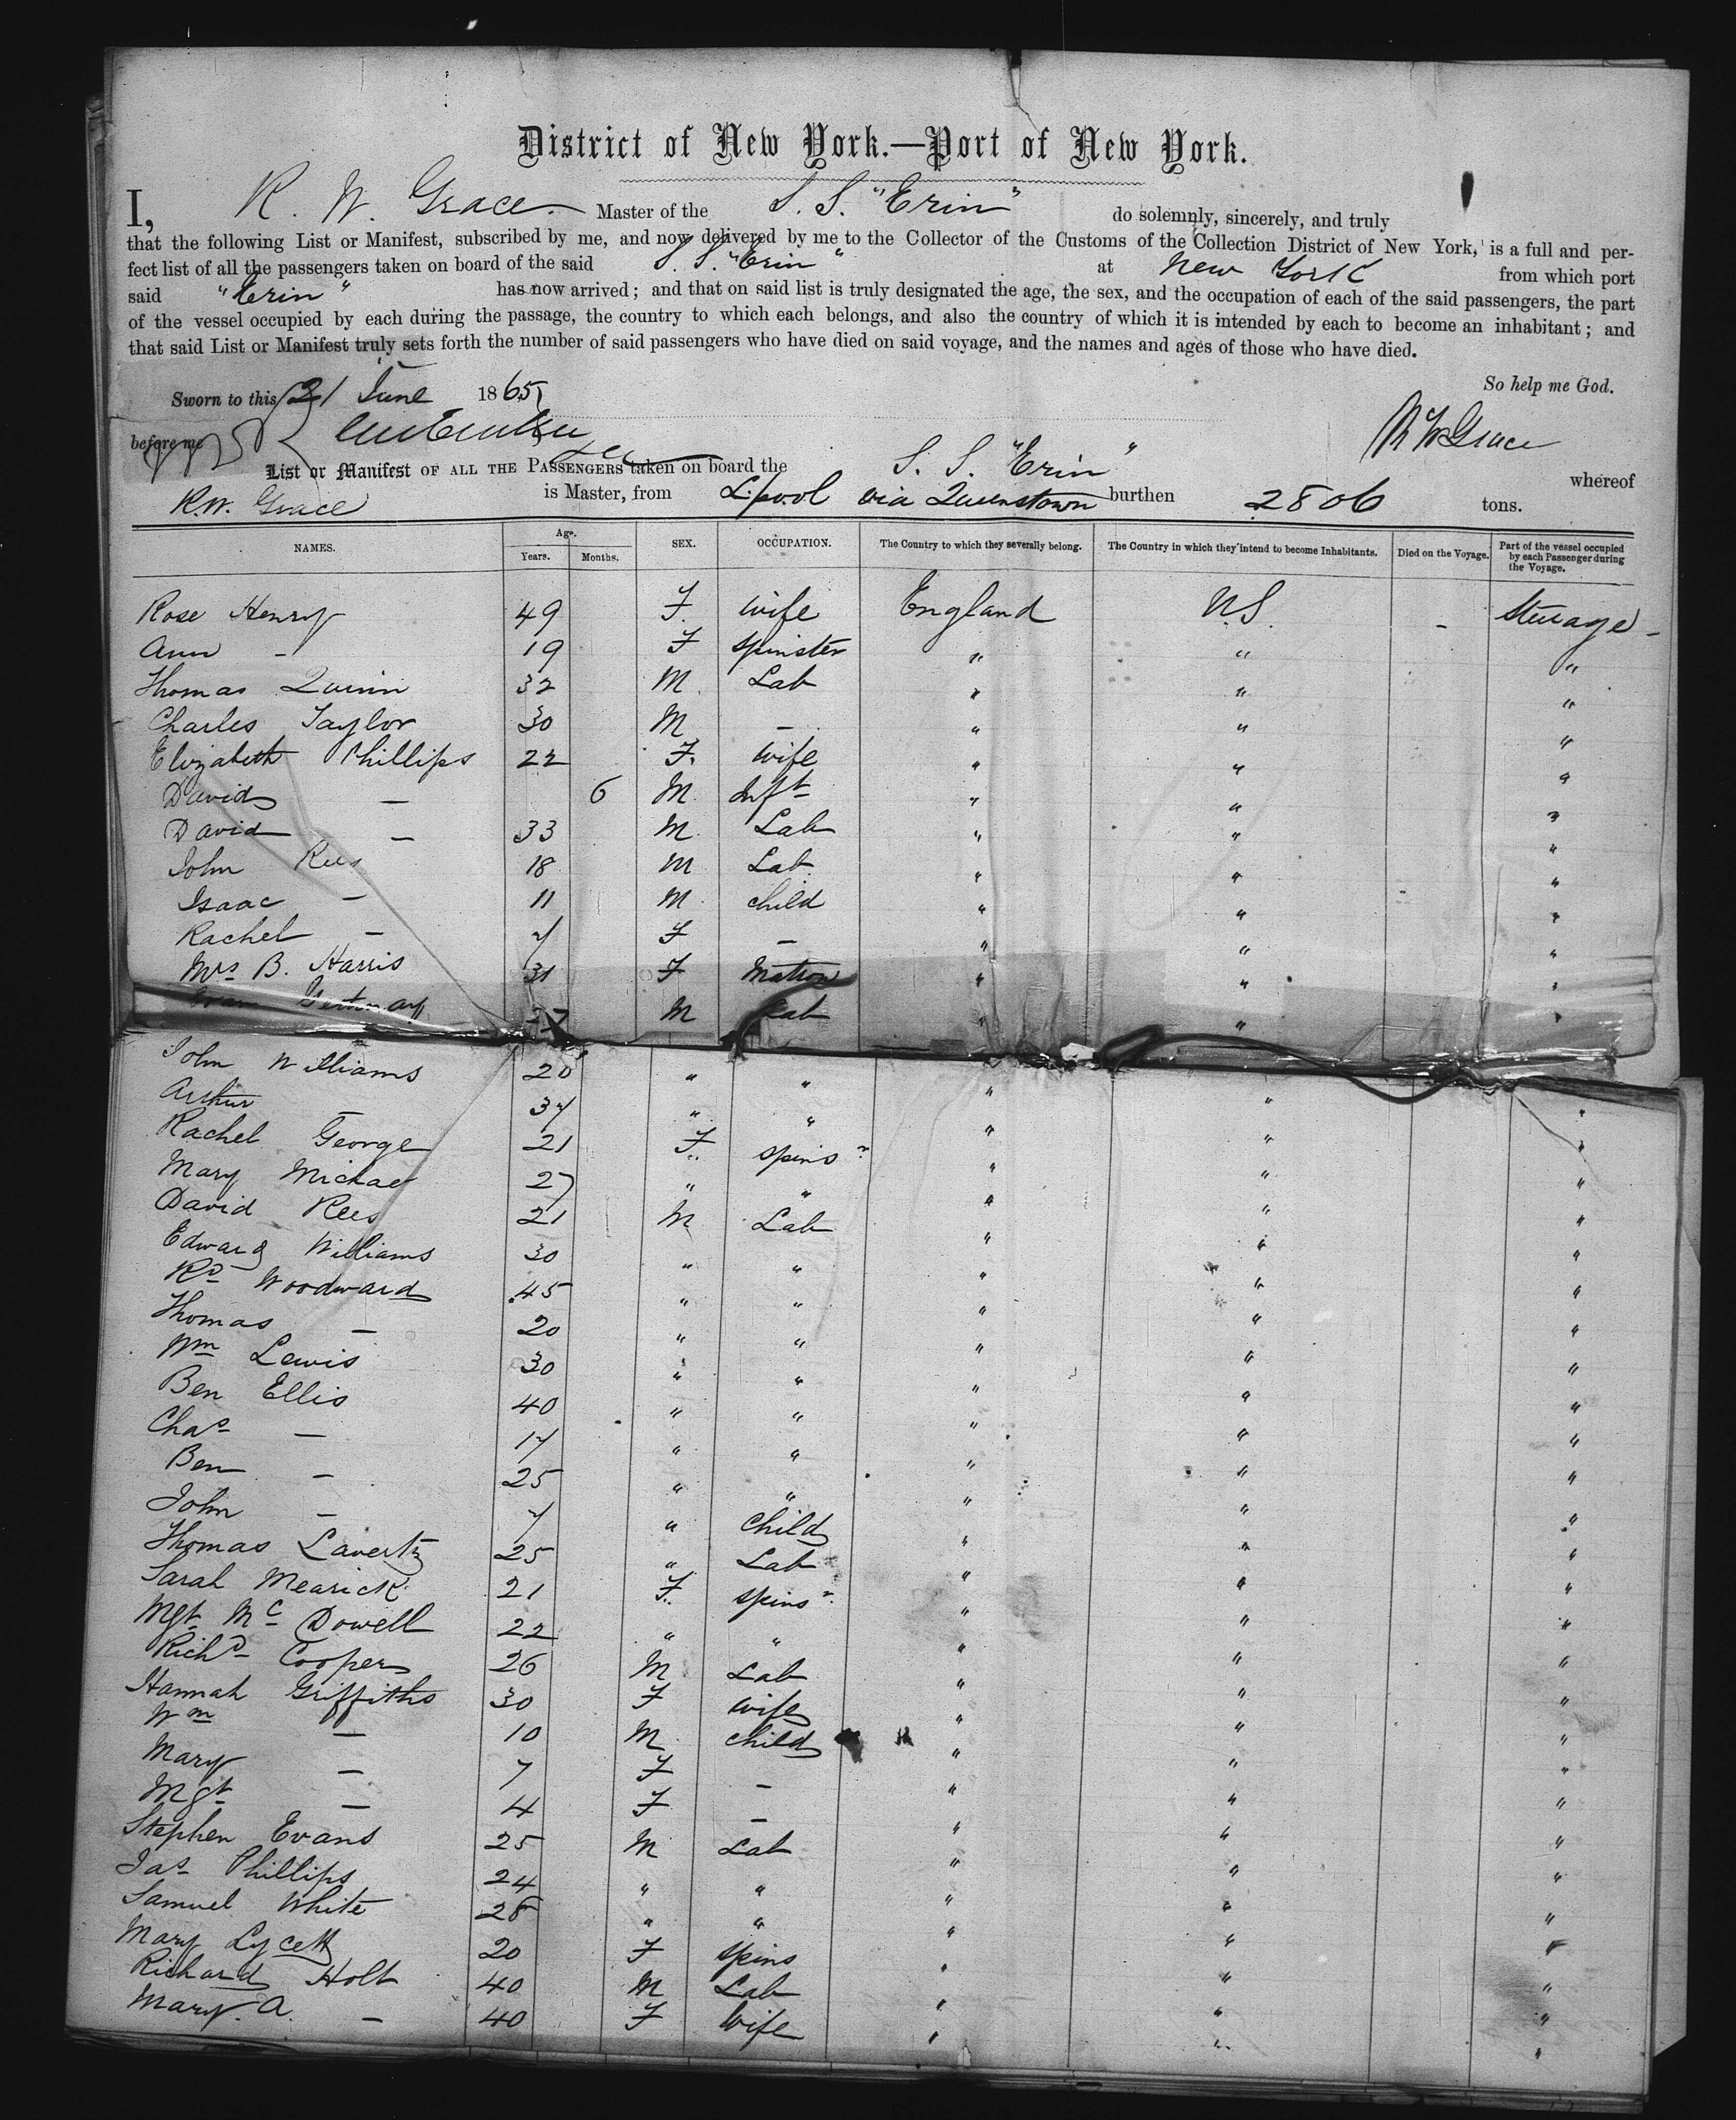 District of New York.—Port of New York.
I, R. W. Grace Master of the S. S. "Erin" do solemnly, sincerely, and truly
that the following List or Manifest, subscribed by me, and now delivered by me to the Collector of the Customs of the Collection District of New York, is a full and per-
fect list of all the passengers taken on board of the said S. S. "Erin" at New York from which port
said "Erin" has now arrived; and that on said list is truly designated the age, the sex, and the occupation of each of the said passengers, the part
of the vessel occupied by each during the passage, the country to which each belongs, and also the country of which it is intended by each to become an inhabitant; and
that said List or Manifest truly sets forth the number of said passengers who have died on said voyage, and the names and ages of those who have died.
So help me God.
Sworn to this 21 June 1865
before me
R W Grace
List or Manifest OF ALL THE PASSENGERS taken on board the S. S. "Erin" whereof
R.W. Grace is Master, from L.pool via Queenstown burthen 2806 tons.
NAMES. Age. Years. Months. SEX. OCCUPATION. The Country to which they severally belong. The Country in which they intend to become Inhabitants. Died on the Voyage. Part of the vessel occupied by each Passenger during the Voyage.
Rose Henry 49 F. wife England U.S. - Steerage -
Ann - 19 F spinster " " "
Thomas Quinn 32 M. Lab " " "
Charles Taylor 30 M - " " "
Elizabeth Phillips 22 F. wife " " "
David - 6 M Inft " " "
David - 33 M Lab " " "
John Rees 18 M Lab " " "
Isaac - 11 M child " " "
Rachel - 7 F - " " "
Mrs B. Harris 31 F Matron " " "
27 M Lab " " "
John Williams 20 " " " " "
Arthur - 37 " " " " "
Rachel George 21 F spinsr " " "
Mary Michael 27 " " " " "
David Rees 21 M Lab " " "
Edward Williams 30 " " " " "
Rd Woodward 45 " " " " "
Thomas - 20 " " " " "
Wm Lewis 30 " " " " "
Ben Ellis 40 " " " " "
Chas - 17 " " " " "
Ben - 25 " " " " "
John - 7 " child " " "
Thomas Laverty 25 " Lab " " "
Sarah Mearick 21 F. spinsr " " "
Mgt McDowell 22 " " " " "
Richd Cooper 26 M Lab " " "
Hannah Griffiths 30 F wife " " "
Wm - 10 M child " " "
Mary - 7 F - " " "
Mgt - 4 F - " " "
Stephen Evans 25 M Lab " " "
Jas Phillips 24 " " " " "
Samuel White 28 " " " " "
Mary Lycett 20 F spins " " "
Richard Holt 40 M Lab " " "
Mary. A. - 40 F Wife " " "